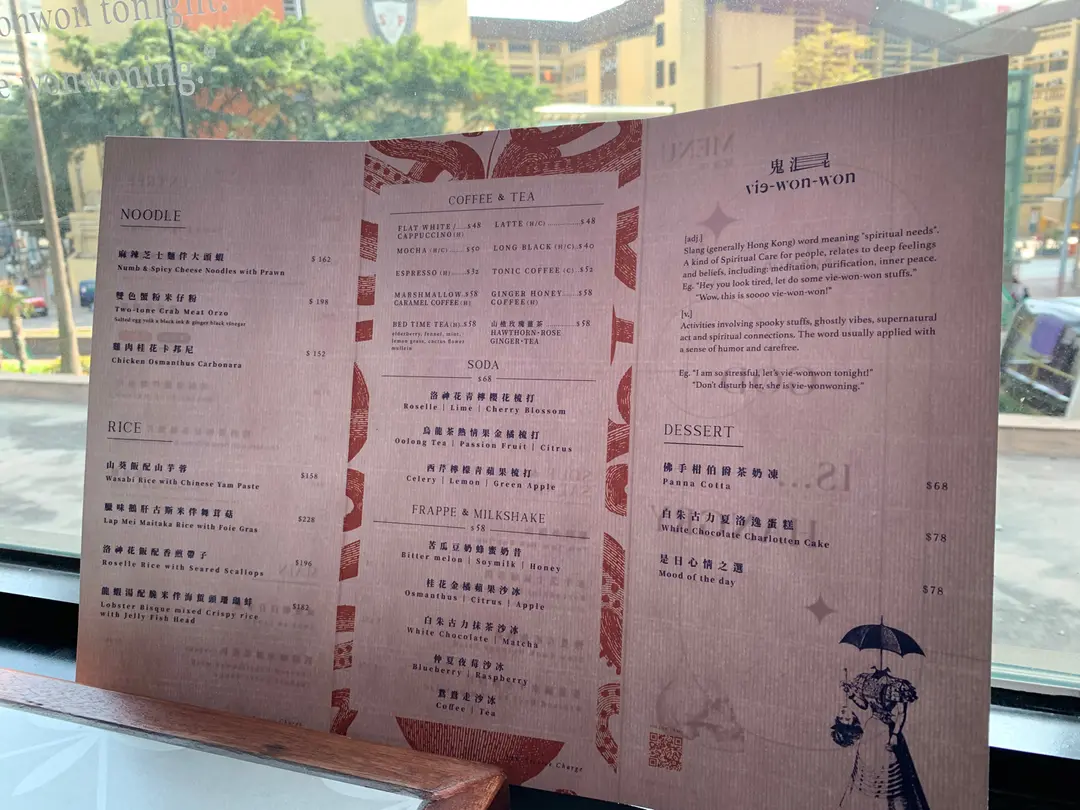 onwon tonight.
wonwoning.
NOODLE
麻辣芝士麵伴大頭蝦
Numb & Spicy Cheese Noodles with Prawn
$ 162
雙色蟹粉米仔粉
Two-tone Crab Meat Orzo
Salted egg yolk & black ink & ginger black vinegar
$ 198
雞肉桂花卡邦尼
Chicken Osmanthus Carbonara
$ 152
RICE
山葵飯配山芋蓉
Wasabi Rice with Chinese Yam Paste
$158
臘味鵝肝古斯米伴舞茸菇
Lap Mei Maitaka Rice with Foie Gras
$228
洛神花飯配香煎帶子
Roselle Rice with Seared Scallops
$196
龍蝦湯配脆米伴海蜇頭珊瑚蚌
Lobster Bisque mixed Crispy rice
with Jelly Fish Head
$182
COFFEE & TEA
FLAT WHITE /....$48
CAPPUCCINO (H)
LATTE (H/C)..............$48
MOCHA (H/C)........$50
LONG BLACK (H/C).$40
ESPRESSO (H).......$32
TONIC COFFEE (C). $52
MARSHMALLOW.$58
CARAMEL COFFEE (H)
GINGER HONEY.......$58
COFFEE(H)
BED TIME TEA(H).$58
elderberry, fennel, mint,
lemon grass, cactus flower
mullein
山楂玫瑰薑茶 ............$58
HAWTHORN·ROSE
GINGER·TEA
SODA
$68
洛神花青檸櫻花梳打
Roselle | Lime | Cherry Blossom
烏龍茶熱情果金橘梳打
Oolong Tea | Passion Fruit | Citrus
西芹檸檬青蘋果梳打
Celery | Lemon | Green Apple
FRAPPE & MILKSHAKE
$58
苦瓜豆奶蜂蜜奶昔
Bitter melon | Soymilk | Honey
桂花金橘蘋果沙冰
Osmanthus | Citrus | Apple
白朱古力抹茶沙冰
White Chocolate | Matcha
仲夏夜莓沙冰
Blueberry | Raspberry
鴛鴦走沙冰
Coffee | Tea
Charge
鬼
vie-won-won
[adj.]
Slang (generally Hong Kong) word meaning "spiritual needs".
A kind of Spiritual Care for people, relates to deep feelings
and beliefs, including: meditation, purification, inner peace.
Eg. "Hey you look tired, let do some vie-won-won stuffs."
"Wow, this is soooo vie-won-won!"
[v.]
Activities involving spooky stuffs, ghostly vibes, supernatural
act and spiritual connections. The word usually applied with
a sense of humor and carefree.
Eg. "I am so stressful, let's vie-wonwon tonight!"
"Don't disturb her, she is vie-wonwoning."
DESSERT
佛手柑伯爵茶奶凍
Panna Cotta
$68
白朱古力夏洛逸蛋糕
White Chocolate Charlotten Cake
$78
是日心情之選
Mood of the day
$78